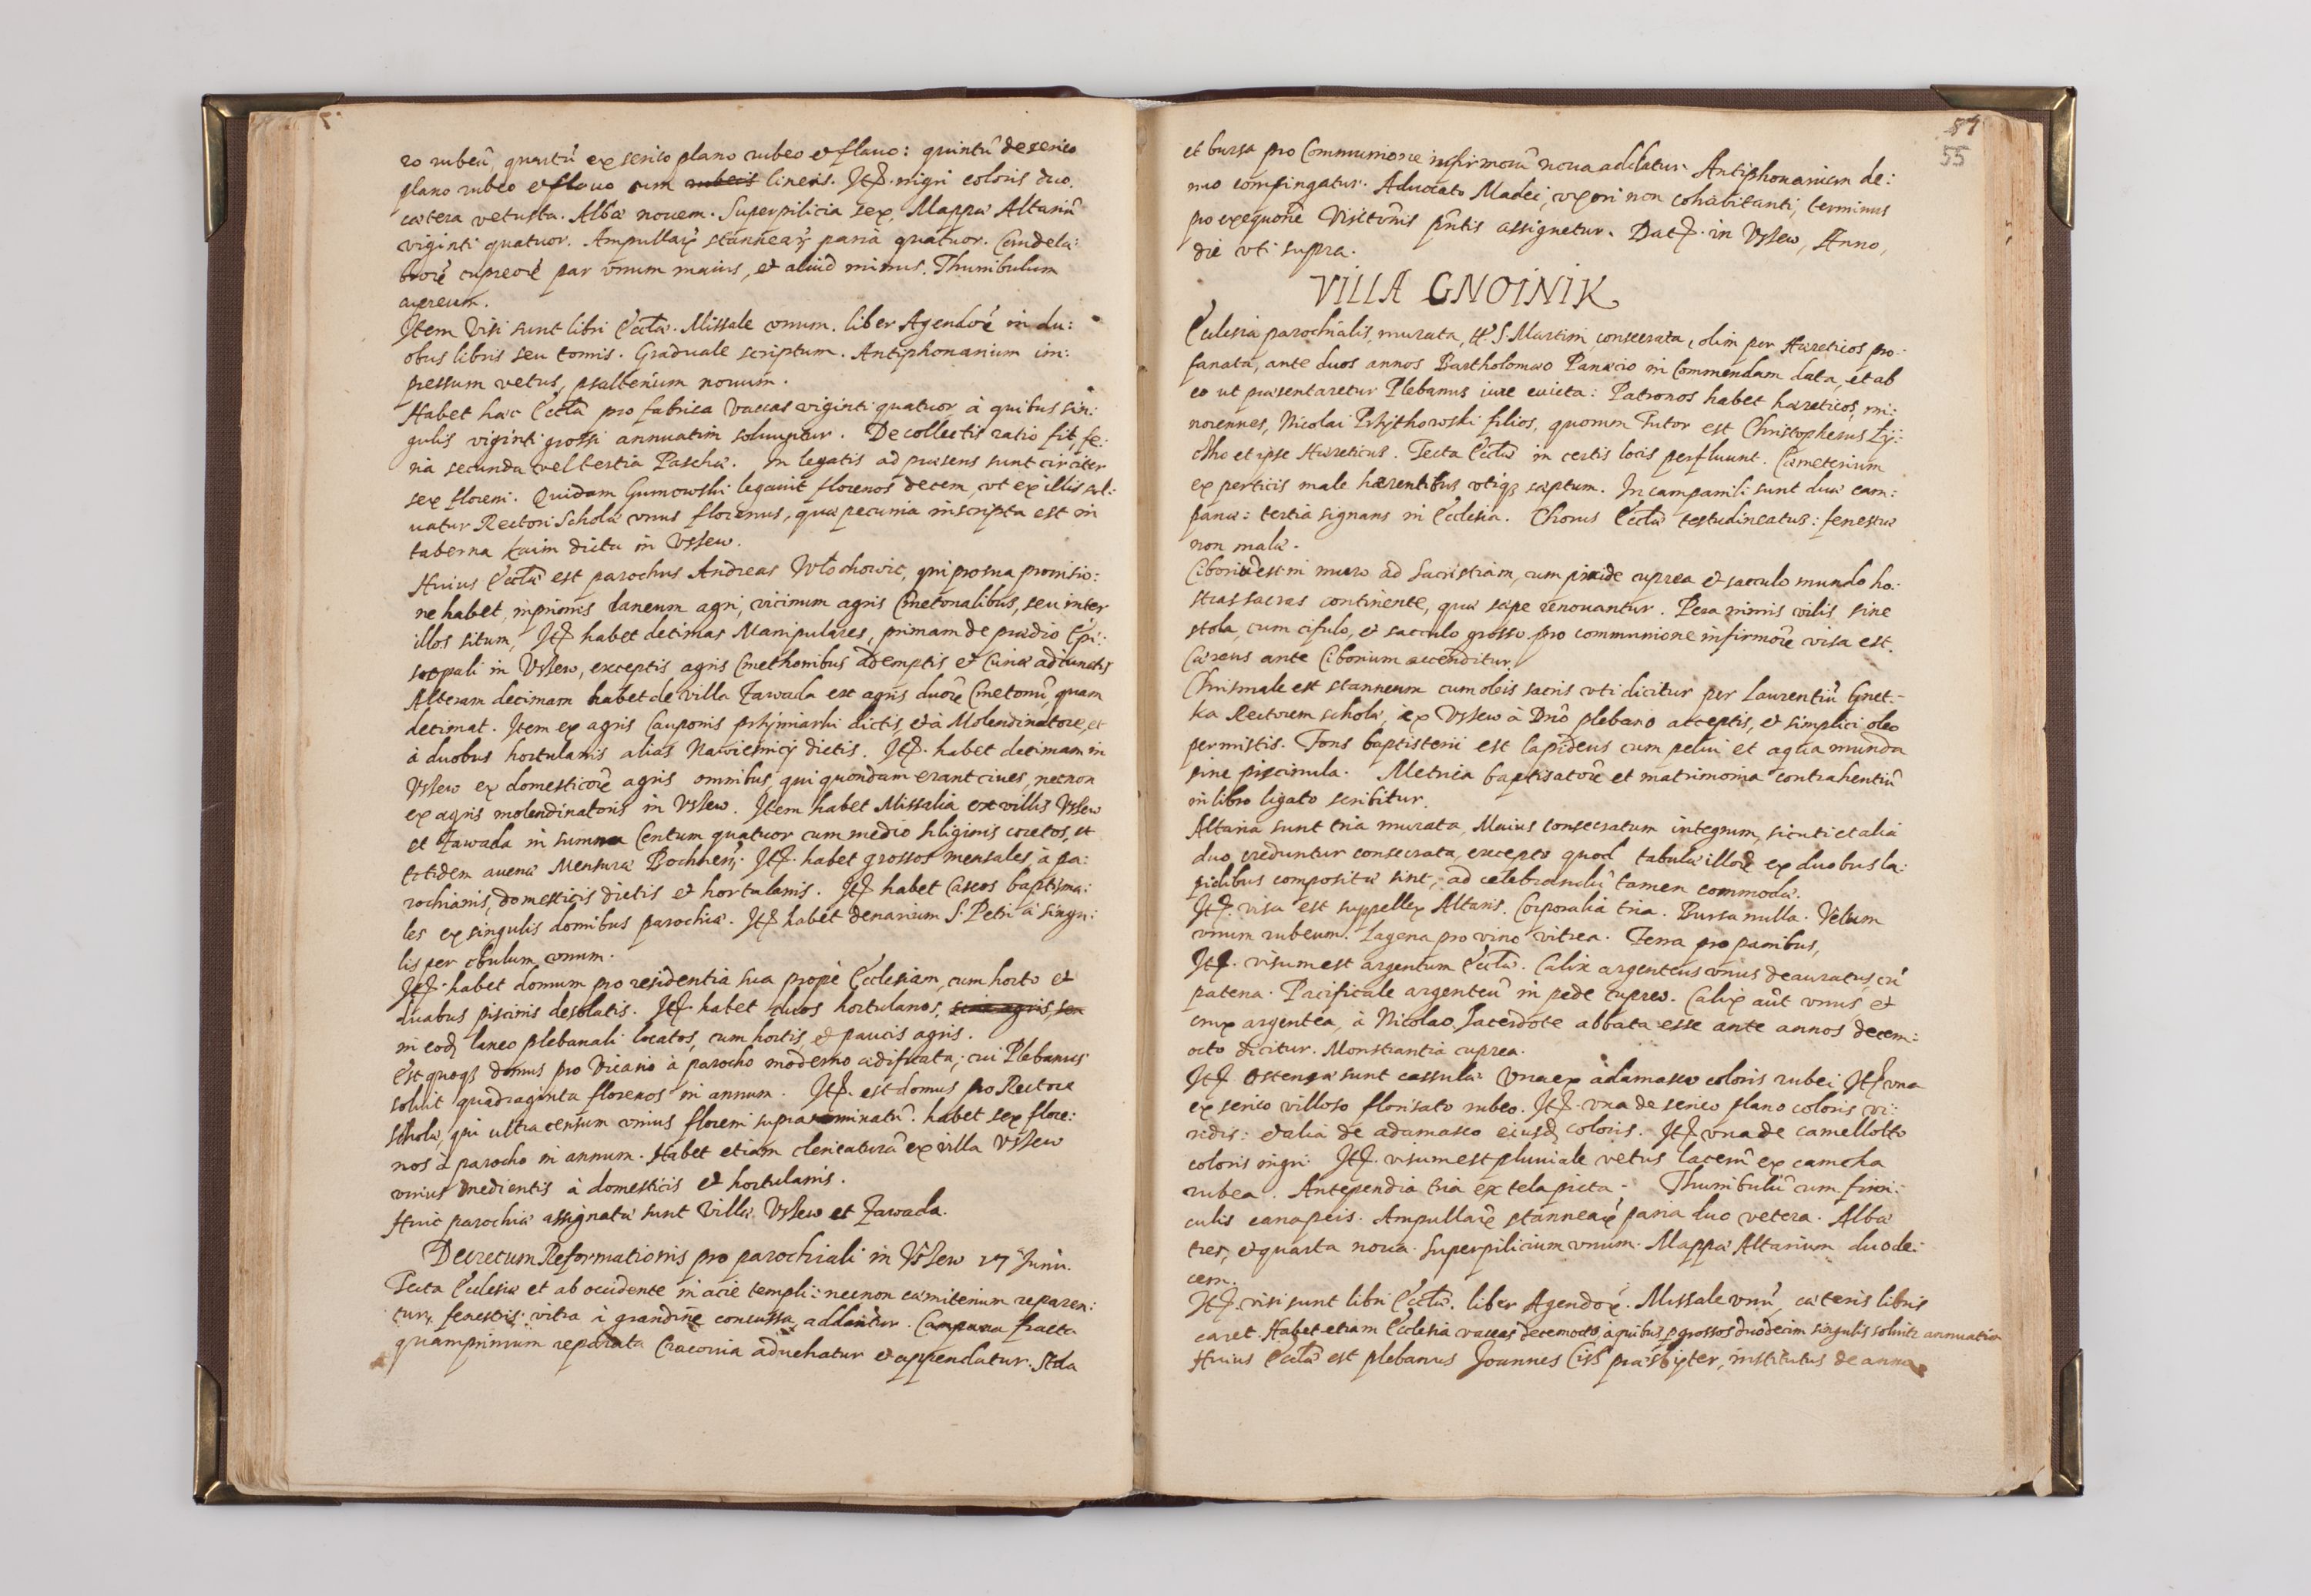 ro rubeū, quartū ex serico plano rubeo et flauo: quintū de serico
plano rubeo et flauo cum rubeis lineis. Itē. nigri coloris duo.
cætera vetusta. Albæ nouem. Superpilicia sex. Mappæ Altariū
viginti quatuor. Ampullarū stannearū paria quatuor. Candela:
brorū cupreorū par vnum maius, et aliud minus. Thuribulum
aereum.
Item Visi sunt libri Eccłæ. Missale vnum. liber Agendorū in du:
obus libris seu tomis. Graduale scriptum. Antiphonarium im:
pressum vetus, psalterium nouum.
Habet hæc Eccła pro fabrica Vaccas viginti quatuor, à quibus sin:
gulis viginti grossi annuatim soluuntur. De collectis ratio fit, fe:
ria secunda vel tertia Paschæ. In legatis ad præsens sunt circiter
sex floreni. Quidam Gumowski legauit florenos decem, vt ex illis sol:
uatur Rectori Scholæ vnus florenus, quæ pecunia inscripta est in
taberna Kaim dicta in Vssew.
Huius Eccłæ est parochus Andreas Włochowic, qui pro sua prouisio:
ne habet, inprimis laneum agri, vicinum agris Cmetonalibus, seu inter
illos situm, Itē habet decimas Manipulares, primam de prædio Epi:
scopali in Vssew, exceptis agris Cmethonibus ademptis et Curiæ adiunctis
Alteram decimam habet de villa Zawada ex agris duorū Cmetonū, quam
decimat. Item ex agris Cauponis przÿmiarki dictis, et à Molendinatore, et
à duobus hortulanis alias Nawiesnicÿ dictis. Itē. habet decimam in
Vssew ex domesticorū agris omnibus, qui quondam erant ciues, necnon
ex agris molendinatoris in Vssew. Item habet Missalia ex villis Vssew
et Zawada in summa Centum quatuor cum medio siliginis coretos, et
totidem auenæ Mensuræ Bochneñ. Itē. habet grossos mensales, à pa:
rochianis, domesticis dictis et hortulanis. Itē habet Caseos baptisma:
les ex singulis domibus parochiæ. Itē habet denarium S. Petri à singu:
lis per obulum vnum.
Itē. habet domum pro residentia sua propè Ecclesiam, cum horto et
duabus piscinis desolatis. Itē. habet duos hortulanos, agris,
in eodē laneo plebanali locatos, cum hortis et paucis agris.
Est quoqꝫ domus pro Vicario à parocho moderno ædificata; cui Plebanus
soluit quadraginta florenos in annum. Itē. est domus pro Rectore
Scholæ, qui ultra censum vnius floreni supranominatū. habet sex flore:
nos à parocho in annum. Habet etiam clericaturā ex villa Vssew
vnius medientis à domesticis et hortulanis.
Huic parochiæ assignatæ sunt Villæ Vssew et Zawada.
Decretum Reformationis pro parochiali in Vssew 27 Junii.
Tecta Ecclesiæ et ab occidente in acie templi: necnon cæmiterium reparen:
tur, fenestris vitra à grandine concussa addantur. Campana fracta
quamprimum reparata Cracouia aduehatur et appendatur. Stola
57
55
et bursa pro Communione infirmorū noua addatur. Antiphonarium de:
nuo compingatur. Aduocato Madei, vxori non cohabitanti, terminus
pro exequōne Visitōnis pñtis assignetur. Datē. in Vssew, Anno,
die vti supra.
VILLA GNOINIK
Ecclesia parochialis, murata, tt. S. Martini, consecrata, olim per Hæreticos pro:
fanata, ante duos annos Bartholomæo Panecio in Commendam data, et ab
eo ut præsentaretur Plebanus iure euicta: Patronos habet hæreticos, mi:
norennes, Nicolai Przÿthowski filios, quorum Tutor est Christophorus Lÿ:
et ipse Hæreticus. Tecta Eccłæ in certis locis perfluunt. Cæmeterium
ex perticis male hærentibus vtiqꝫ sæptum. In campanili sunt duæ cam:
panæ: tertia signans in Ecclesia. Chorus Eccłæ testudineatus: fenestræ
non malæ.
Ciboriū est in muro ad Sacristiam, cum pixide cuprea et sacculo mundo ho:
stias sacras continente, quæ sæpe renouantur. Pera nimis vilis, sine
stola, cum cifulo, et sacculo grosso pro communione infirmorū visa est.
Cæreus ante Ciborium accenditur.
Chrismale est stanneum cum oleis sacris vti dicitur per Laurentiū Gnet-
ka Rectorem scholæ, ex Vssew à Dnō plebano acceptis, et simplici oleo
permistis. Fons baptisterii est lapideus cum pelui et aqua munda
sine piscinula. Metrica baptisatorū et matrimonia contrahentiū
in libro ligato scribitur.
Altaria sunt tria murata, Maius consecratum integrum, sicuti et alia
duo, creduntur consecrata, excepto quod tabulæ illorū ex duobus la:
pidibus compositæ sint, ad celebrandū tamen commodæ.
Itē. visa est suppellex Altaris. Corporalia tria. Bursa nulla. Velum
vnum rubeum. Lagena pro vino vitrea. Ferra pro panibus,
Itē. visum est argentum Eccłæ. Calix argenteus vnus deauratus, cū
patena. Pacificale argenteū in pede cupreo. Calix aūt vnus, et
crux argentea, à Nicolao Sacerdote abbata esse ante annos decem:
octo dicitur. Monstrantia cuprea.
Itē. ostensæ sunt cassulæ. Vna ex adamasco coloris rubei Itē vna
ex serico villoso florisato rubeo. Itē. vna de serico plano coloris vi:
ridis: et alia de adamasco eiusdē coloris. Itē vna de camellotto
coloris nigri. Itē. visum est pluuiale vetus lacerū ex camcha
rubea. Antependia tria ex tela picta; Thuribulū cum funi:
culis canapeis. Ampullarū stannearū paria duo vetera. Albæ
tres, et quarta noua. Superpilicium vnum. Mappæ Altarium duode:
cem.
Itē. visi sunt libri Eccłæ. liber Agendorū. Missale vnū, cæteris libris
caret. Habet etiam Ecclesia vaccas decemocto, à quibus p grossos duodecim singulis soluitr annuatim
Huius Eccłæ est plebanus Joannes Ciss præsbyter, institutus de anno